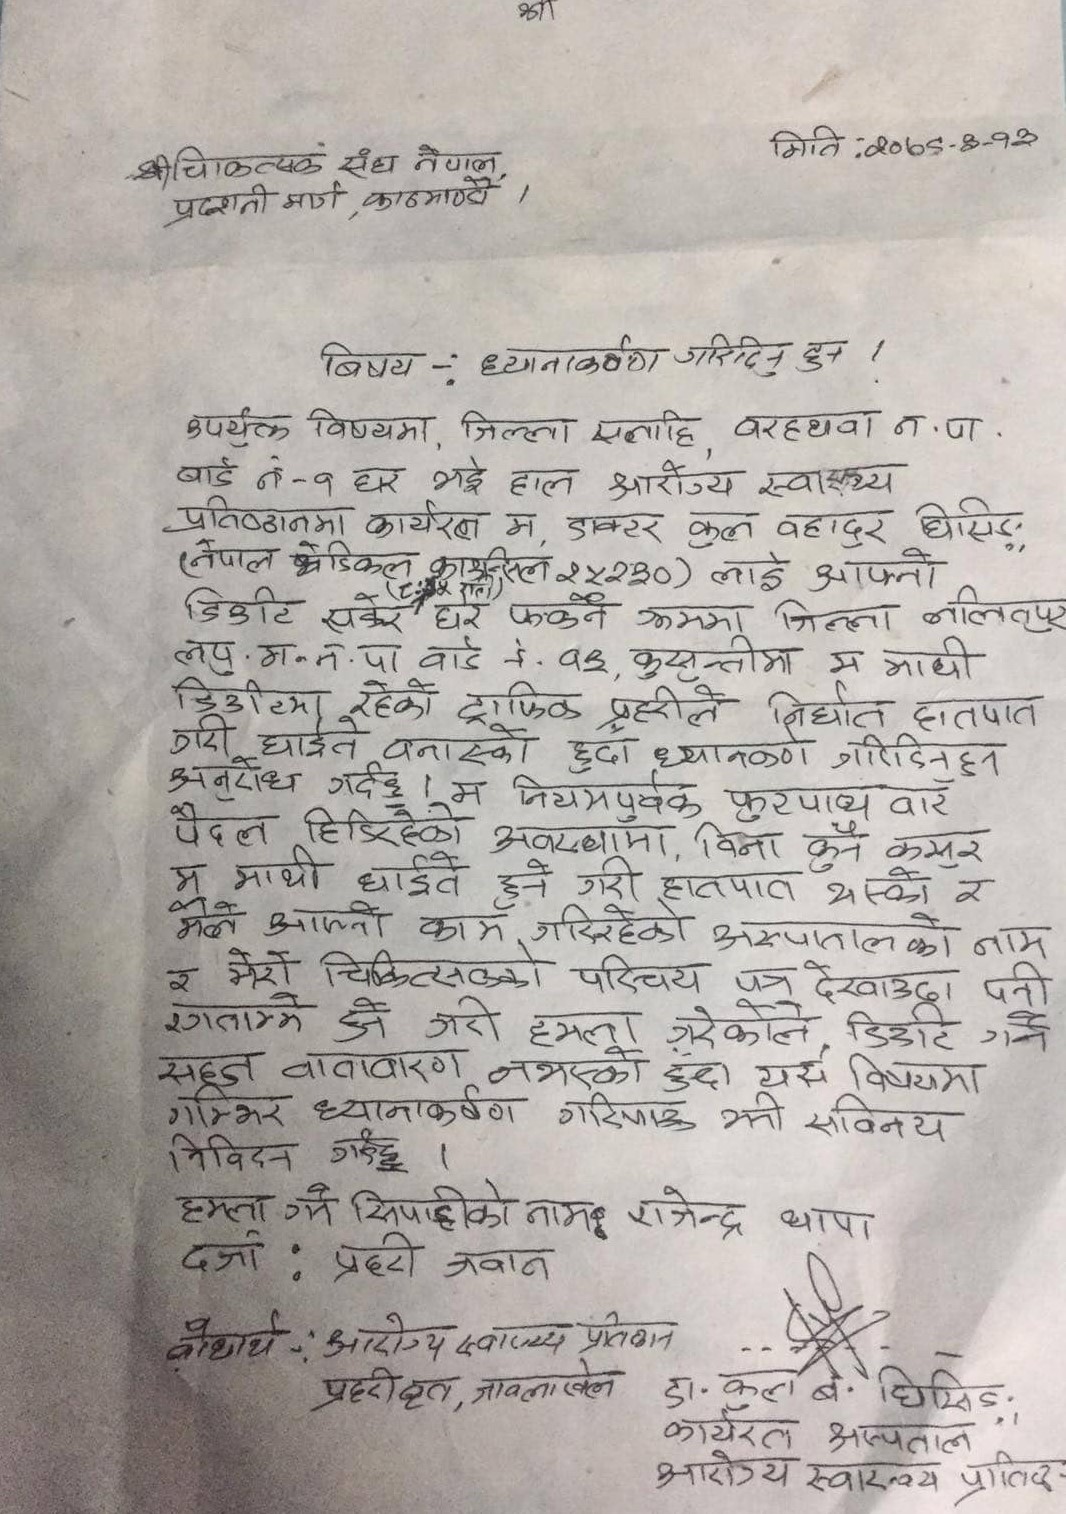 श्री
मिति : २०७६-४-१३
श्री चिकित्सक संघ नेपाल,
प्रदशनी मार्ग, काठमाण्डौ ।
बिषय -: ध्यानाकर्षण गरिदिनु हुन ।
उपर्युक्त विषयमा, जिल्ला सर्लाहि, वरहथवा न.पा.
वार्ड नं-१ घर भई हाल आरोग्य स्वास्थ्य
प्रतिष्ठानमा कार्यरत म, डाक्टर कुल वहादुर घिसिङ,
(नेपाल मेडिकल काउन्सिल २५२३०) लाई आफ्नो
डिउटि सकेर घर फर्कने क्रममा जिल्ला ललितपुर
लपु.म.न.पा वार्ड नं. १३, कुसुन्तीमा म माथी
डिउटिमा रहेको ट्राफिक प्रहरीले निर्घात हातपात
गरी घाईते वनाएको हुदाँ ध्यानकर्ण गरिदिनुहुन
अनुरोध गर्दछु । म नियमपुर्वक फुटपाथ वाट
पैदल हिडिरहेको अवस्थामा, विना कुनै कसुर
म माथी घाईते हुने गरी हातपात भएको र
मैले आफ्नो काम गरिरहेको अस्पतालको नाम
र मेरो चिकित्सकको परिचय पत्र देखाउदा पनी
रगताम्मे हुने गरी हमला गरेकोले, डिउटि गर्ने
सहज वातावारण नभएको हुंदा यस विषयमा
गम्भिर ध्यानाकर्षण गरिपाउ भनी सविनय
निविदन गर्दछु ।
हमला गर्ने सिपाहीको नाम : राजेन्द्र थापा
दर्जा : प्रहरी जवान
वोधार्थ -: आरोग्य स्वास्थ्य प्रतिष्ठान
प्रहरी वृत, जावलाखेल
डा. कुल ब. घिसिङ
कार्यरत अस्पताल
आरोग्य स्वास्थ्य प्रतिष्